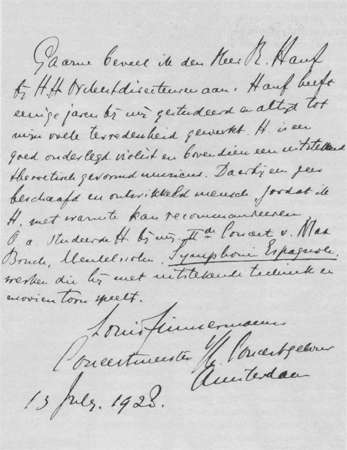 Gaarne beveel ik den Heer R. Hauf
bij H.H. Orchestdirecteuren aan. Hauf heeft
eenige jaren bij mij gestudeerd en altijd tot
mijn volle tevredenheid gewerkt. H. is een
goed onderlegd violist en bovendien een uitstekend
theoretisch gevormd musicus. Daarbij een zeer
beschaafd en ontwikkeld mensch zoodat ik
H. met warmte kan recommandeeren
O.a. studeerde H. bij mij II de Concert v. Max
Bruch, Mendelssohn, Symphonie Espagnole
werken die hij met uitstekende techniek en
mooien toon speelt.
Louis Zimmermann
Concertmeester Concertgebouw
Amsterdam
13 July. 1928.